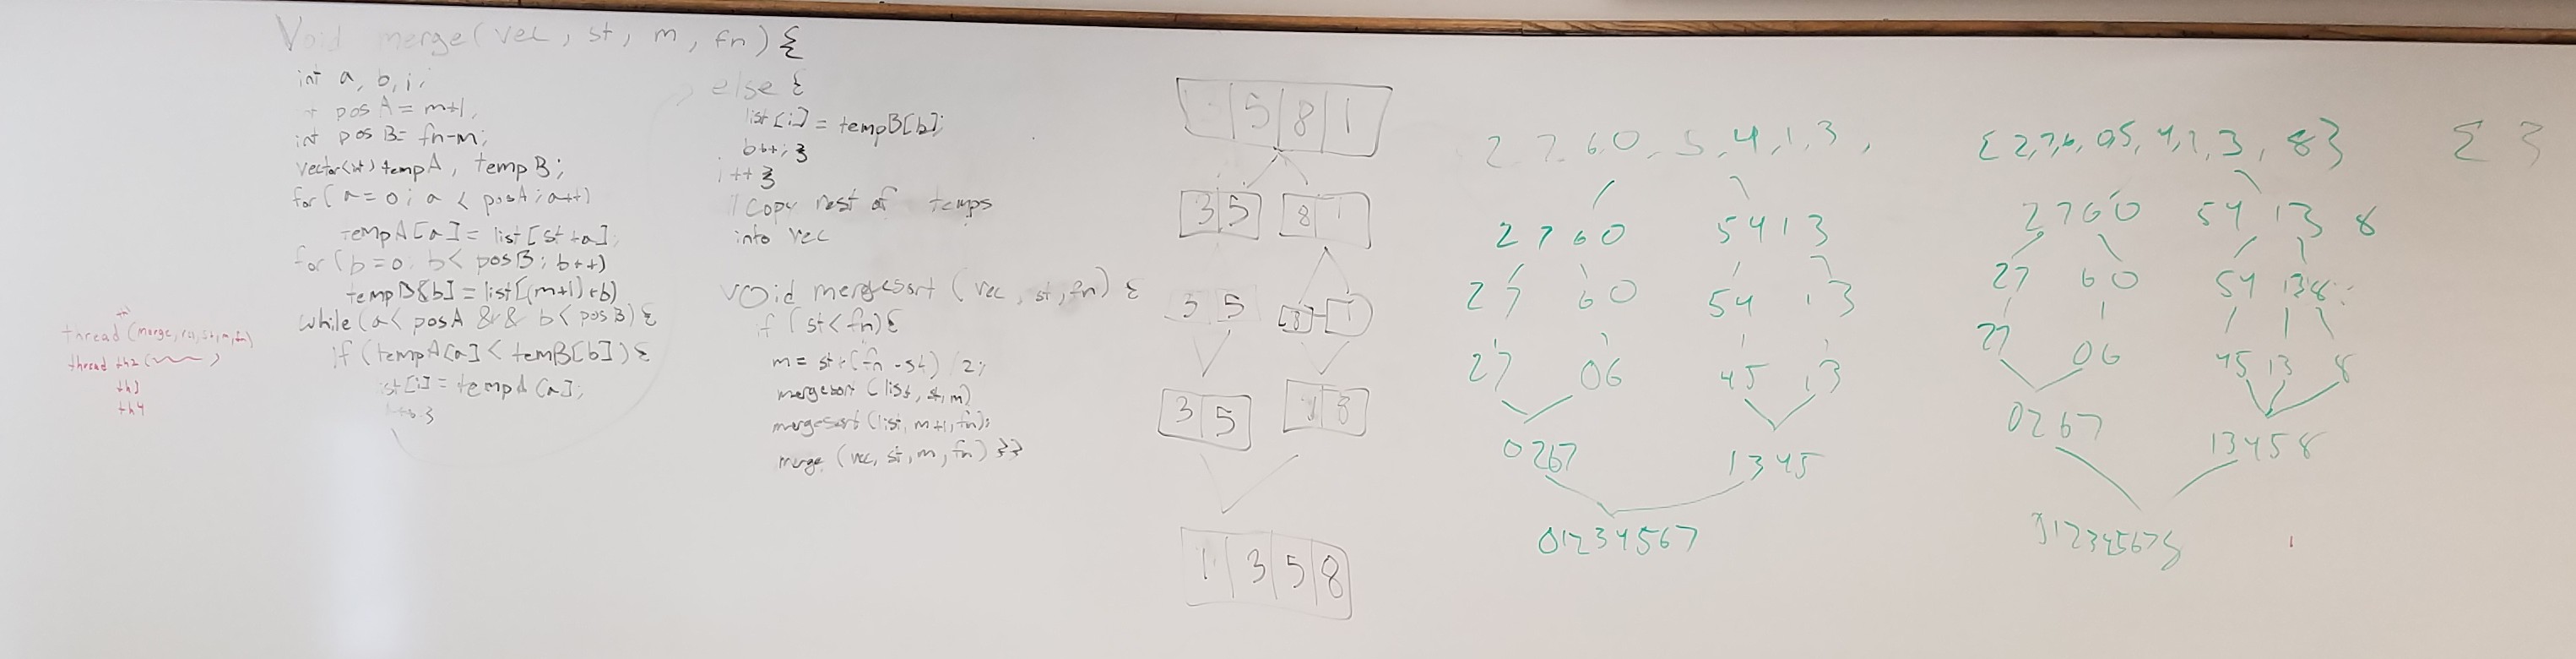 Void merge(vec, st, m, fn) {
int a, b, i,
posA = m+1,
int posB = fn-m;
vector<int> tempA, tempB;
for(a=0; a < posA; a++)
tempA[a] = list[st+a];
for(b=0; b< posB; b++)
tempB[b] = list[(m+1)+b)
while(a< posA && b< posB) {
if (tempA[a] < temB[b]) {
list[i] = tempA[a];
}
else {
list[i] = tempB[b];
b++; }
i++ }
// Copy rest of temps
into vec
void mergesort (vec, st, fn) {
if (st< fn) {
m = st+(fn-st) /2;
mergesort (list, st, m)
mergesort (list, m+1, fn);
merge (vec, st, m, fn) }}
thread (merge, vec, st, m, fn)
thread th2 ( )
th3
th4
5 8 1
3 5 8 1
3 5 8 1
3 5 1 8
1 3 5 8
2 7 6 0 5, 4, 1, 3,
2 7 6 0 5 4 1 3
2 7 6 0 5 4 1 3
2 7 0 6 4 5 1 3
0 2 6 7 1 3 4 5
0 1 2 3 4 5 6 7
{ 2, 7, 6, 0, 5, 4, 1, 3, 8 }
2 7 6 0 5 4 1 3 8
2 7 6 0 5 4 1 3 8
2 7 0 6 4 5 1 3 8
0 2 6 7 1 3 4 5 8
0 1 2 3 4 5 6 7 8
{ }